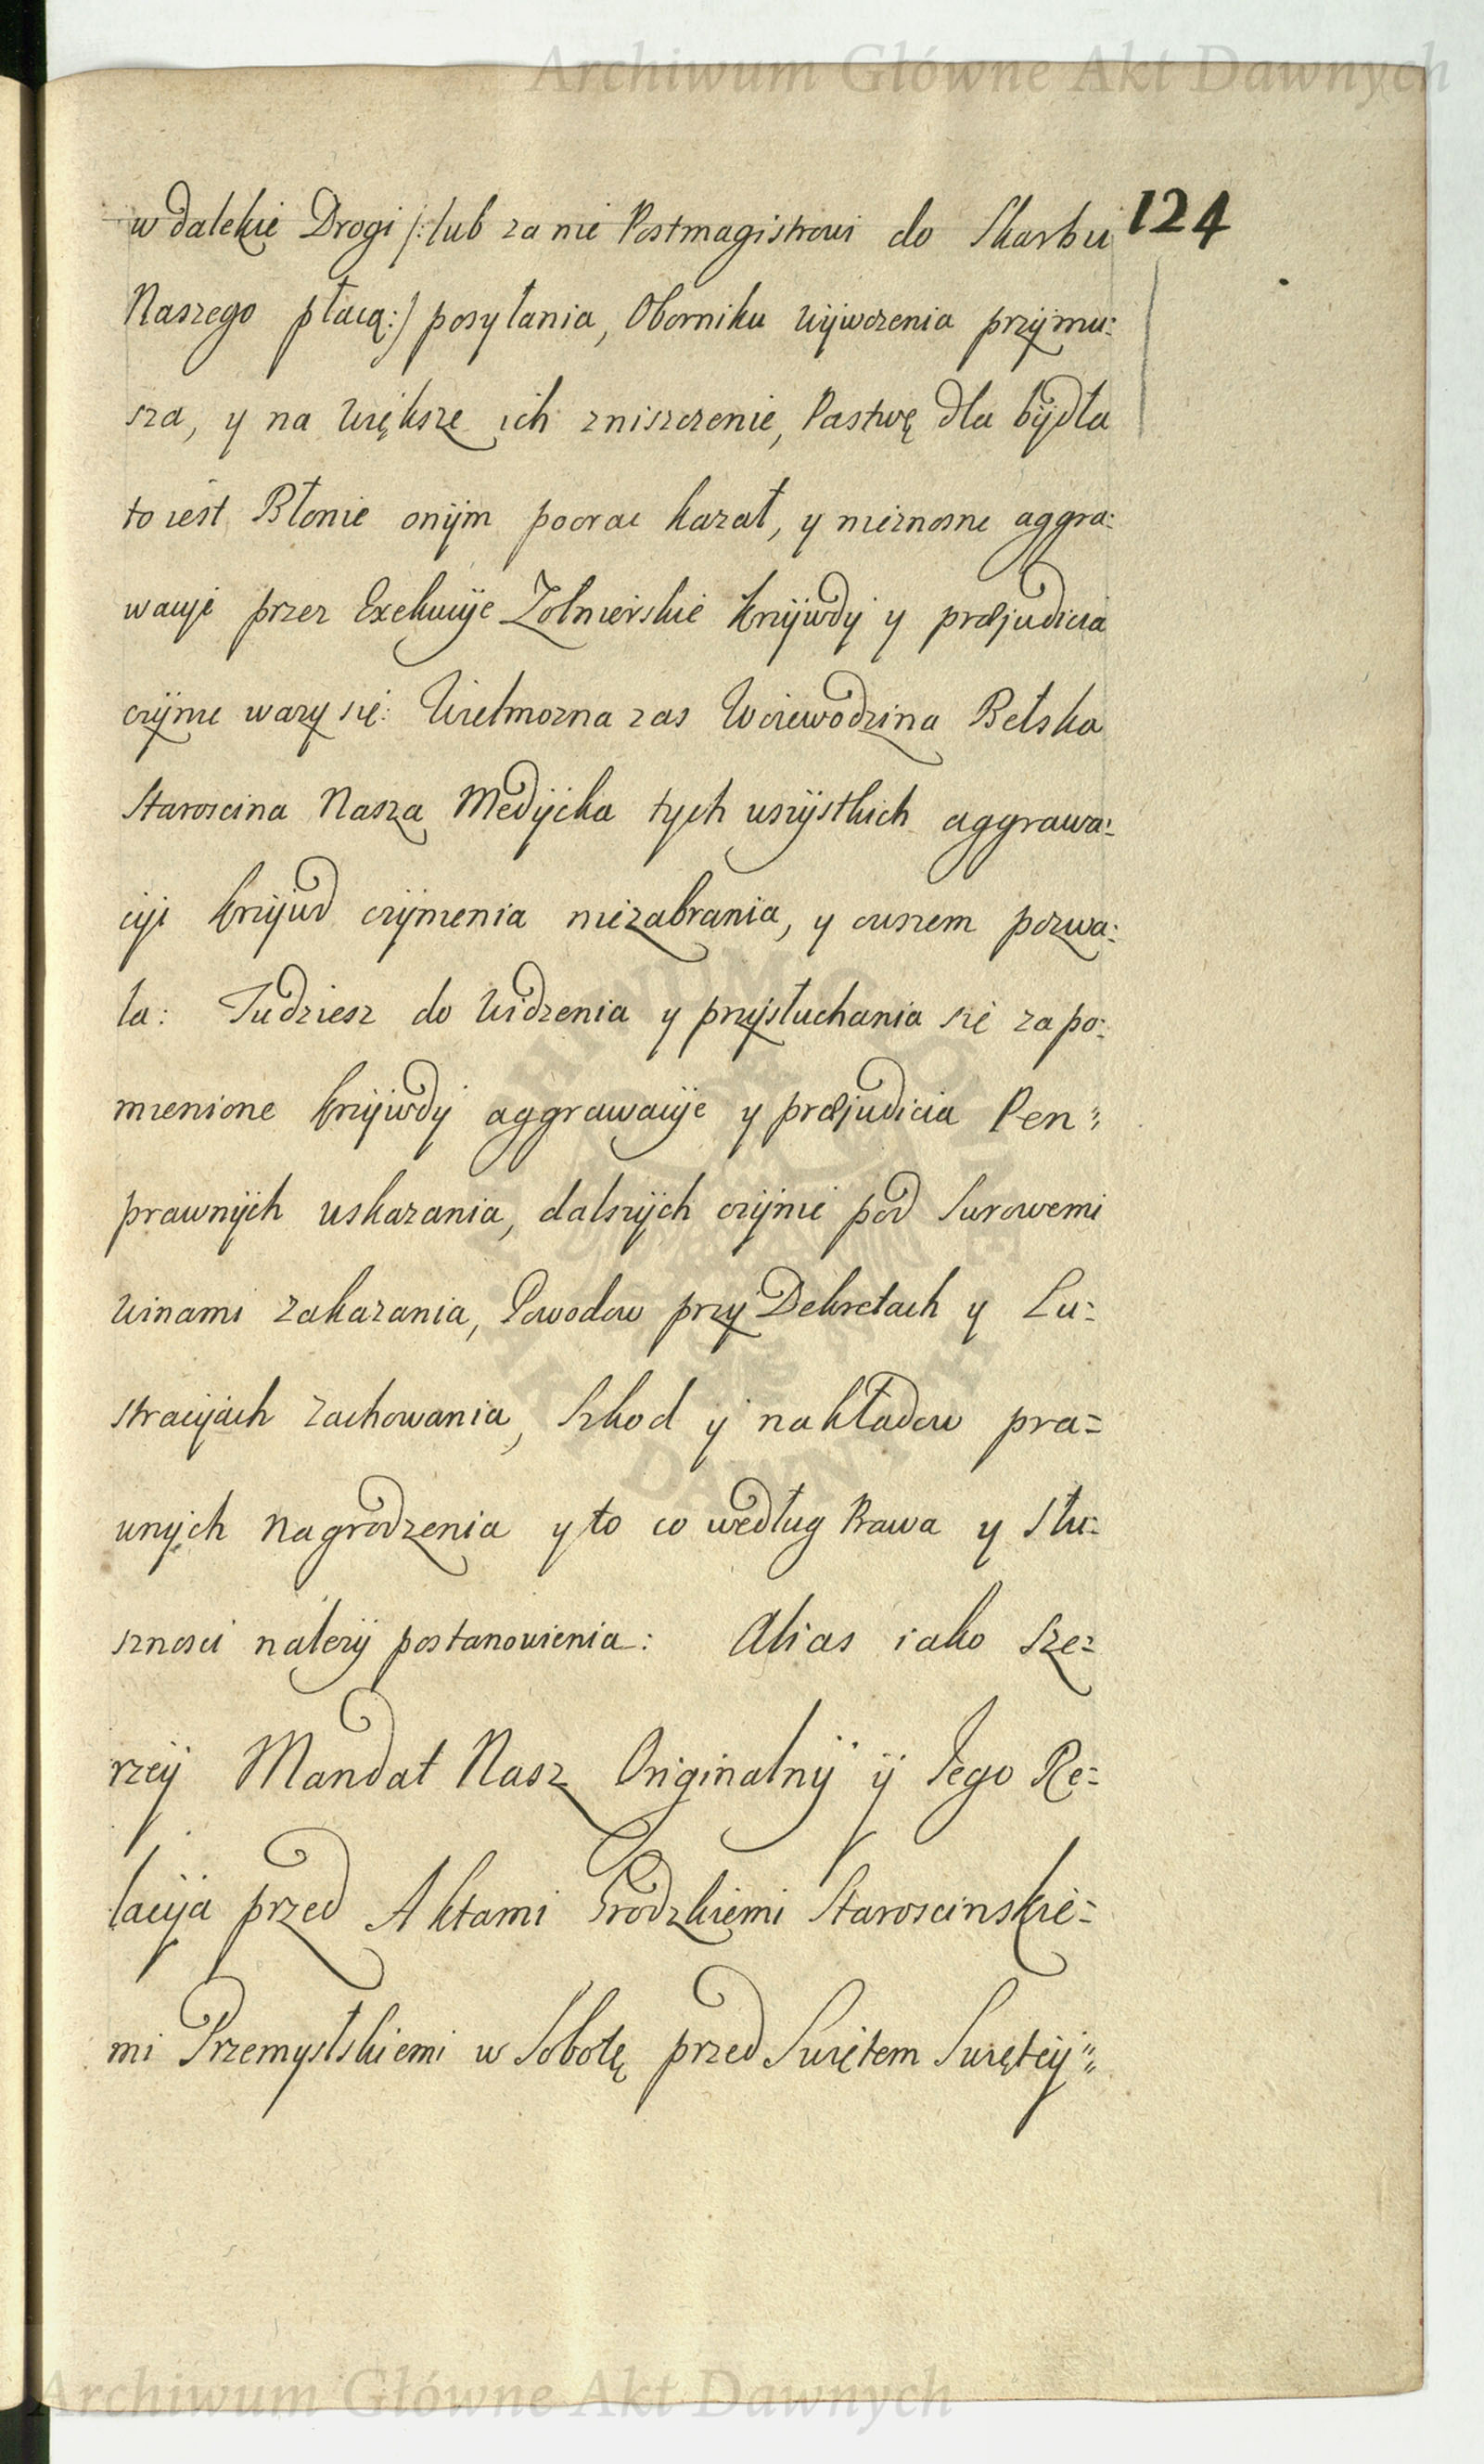 Archiwum Główne Akt Dawnych
124
w dalekie Drogi /: lub za nie Postmagistrowi do Skarbu
Naszego płacą :/ posyłania, Oborniku wÿwozenia przÿmu:
sza, y na większe ich zniszczenie, Pastwę dla bÿdła
to iest Błonie onÿm poorac kazał, y nieznosne aggra:
wacÿe przez Exekucÿe Zołnierskie krzÿwdÿ y præjudicia
czÿnic wazy się: Wielmozna zas Woiewodzina Bełska
Staroscina Nasza Medÿcka tych wszÿstkich aggrawa:
cÿi krzÿwd czÿnienia niezabrania, y owszem pozwa:
la: Tudziesz do widzenia y przÿsłuchania się zapo:
mienione krzÿwdÿ aggrawacÿie y præjudicia Pen:
prawnÿch uskazania, dalszÿch czÿnic pod Surowemi
winami zakazania, Powodow przÿ Dekretach y Lu:
stracÿach zachowania, Szkod ÿ nakładow pra=
wnych nagrodzenia y to co według Prawa y Słu:
sznosci nalezÿ postanowienia: Alias iako Sze=
rzeÿ Mandat Nasz Originalnÿ ÿ Iego Re=
lacÿa przed Aktami Grodzkiemi Staroscinskie=
mi Przemyslskiemi w Sobotę przed Swiętem Swięteÿ
ARCHIWUM GŁÓWNE
AKT DAWNYCH
Archiwum Główne Akt Dawnych